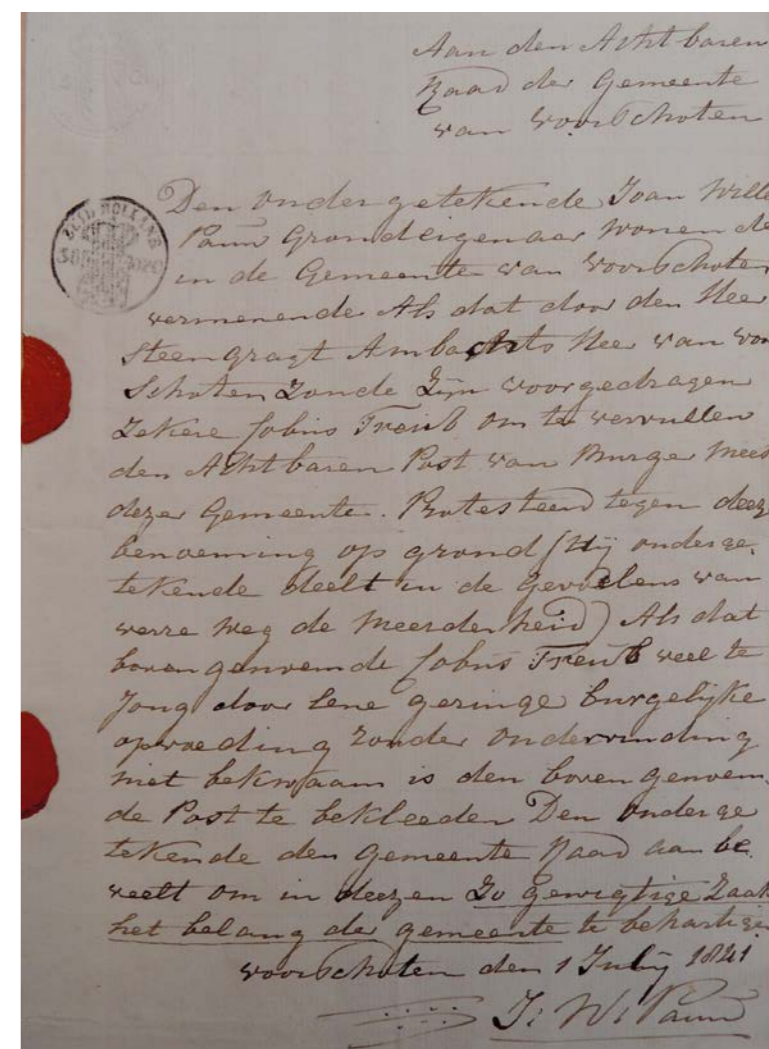 Aan den Achtbaren
Raad der Gemeente
van Voorschoten
Den ondergetekende Joan Wille
Pauw Grondeigenaar wonende
in de Gemeente van Voorschoten
vermenende Als dat door den Heer
Steengragt Ambachts Heer van voor
Schoten zoude zijn voorgedragen
zekere Jobus Treub om te vervullen
den Achtbaren Post van Burge Mees
dezer Gemeente. Protesteerd tegen deez
benoeming op grond (Hij onderge,
tekende deelt in de gevoelens van
verre weg de meerderheid) Als dat
bovengenoemde Jobus Treub veel te
Jong door eene geringe burgelijke
opvoeding zonder ondervinding
niet bekwaam is den boven genoem,
de Post te bekleeden Den onderge
tekende den Gemeente Raad aan be.
veelt om in deezen zo gewigtige zaak
het belang der gemeente te behartige
voorschoten den 1 July 1841
J: W: Pauw
ZUID HOLLAND